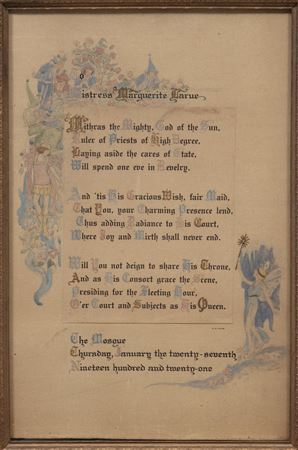 To
Mistress Marguerite Larue
Mithras the Mighty, God of the Sun,
Ruler of Priests of High Degree,
Laying aside the cares of State,
Will spend one eve in Revelry.
And 'tis His Gracious Wish, fair Maid,
That You, your Charming Presence lend,
Thus adding Radiance to His Court,
Where Joy and Mirth shall never end.
Will You not deign to share His Throne,
And as His Consort grace the Scene,
Presiding for the Fleeting Hour,
O'er Court and Subjects as His Queen.
The Mosque
Thursday, January the twenty-seventh
Nineteen hundred and twenty-one